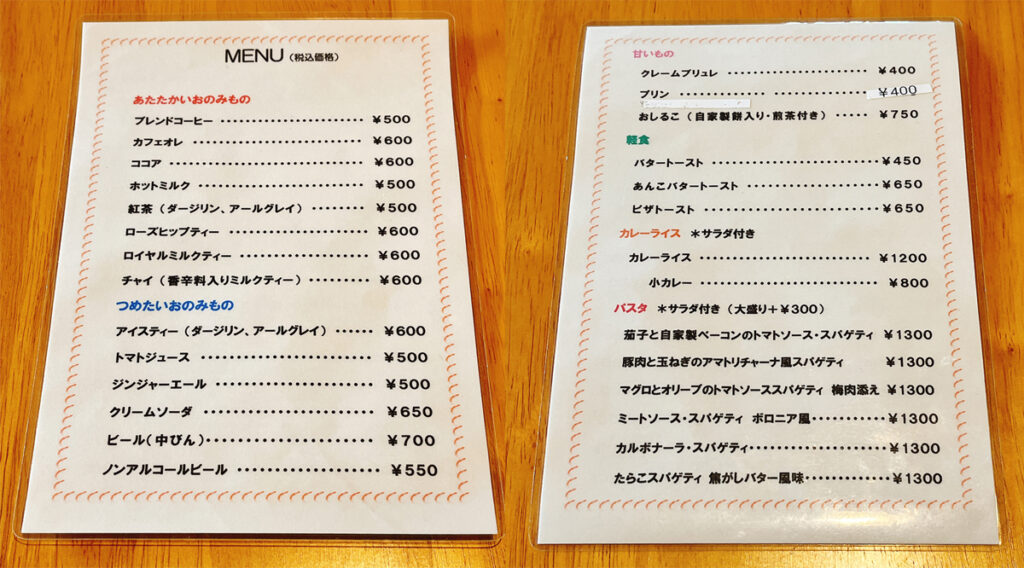 MENU (税込価格)
あたたかいおのみもの
ブレンドコーヒー ・・・・・・・・・・・・・・・・・・ ¥500
カフェオレ ・・・・・・・・・・・・・・・・・・・・・・ ¥600
ココア ・・・・・・・・・・・・・・・・・・・・・・・・ ¥600
ホットミルク ・・・・・・・・・・・・・・・・・・・・・ ¥500
紅茶(ダージリン、アールグレイ) ・・・・・・・・ ¥500
ローズヒップティー ・・・・・・・・・・・・・・・・・ ¥600
ロイヤルミルクティー ・・・・・・・・・・・・・・・・ ¥600
チャイ(香辛料入りミルクティー) ・・・・・・・・ ¥600
つめたいおのみもの
アイスティー(ダージリン、アールグレイ) ・・・・・・ ¥600
トマトジュース ・・・・・・・・・・・・・・・・・・・ ¥500
ジンジャーエール ・・・・・・・・・・・・・・・・・・ ¥500
クリームソーダ ・・・・・・・・・・・・・・・・・・・ ¥650
ビール(中びん)・・・・・・・・・・・・・・・・・・・ ¥700
ノンアルコールビール ・・・・・・・・・・・・・・・・ ¥550
甘いもの
クレームブリュレ ・・・・・・・・・・・・・・・・・・ ¥400
プリン ・・・・・・・・・・・・・・・・・・・・・・・ ¥400
おしるこ(自家製餅入り・煎茶付き) ・・・・・ ¥750
軽食
バタートースト ・・・・・・・・・・・・・・・・・・・・¥450
あんこバタートースト ・・・・・・・・・・・・・・・・ ¥650
ピザトースト ・・・・・・・・・・・・・・・・・・・・・ ¥650
カレーライス *サラダ付き
カレーライス ・・・・・・・・・・・・・・・・・・・・・¥1200
小カレー ・・・・・・・・・・・・・・・・・・・・・・ ¥800
パスタ *サラダ付き (大盛り+¥300)
茄子と自家製ベーコンのトマトソース・スパゲティ ¥1300
豚肉と玉ねぎのアマトリチャーナ風スパゲティ ¥1300
マグロとオリーブのトマトソーススパゲティ 梅肉添え ¥1300
ミートソース・スパゲティ ボロニア風・・・・・・・・・・¥1300
カルボナーラ・スパゲティ・・・・・・・・・・・・・・・・・¥1300
たらこスパゲティ 焦がしバター風味・・・・・・・・・・・・¥1300